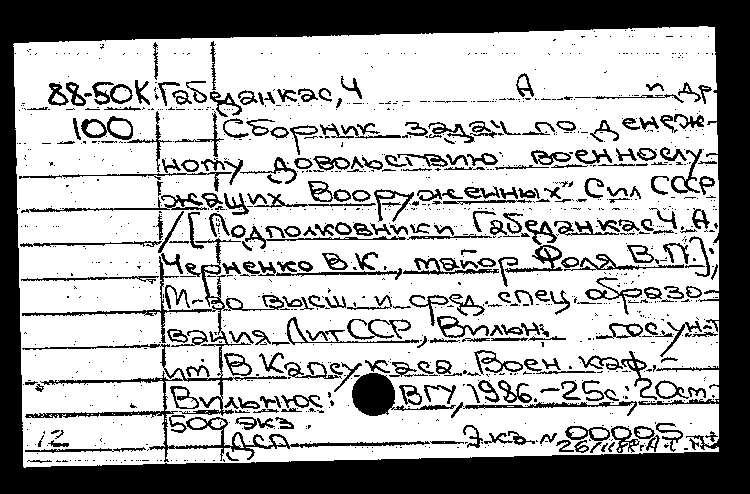 88-50К Габеданкас, Ч А и др.
100 Сборник задач по денеж-
ному довольствию военнослу-
жащих Вооруженных Сил СССР
/[Подполковники Габеданкас Ч. А.,
Черненко В.К., майор Фоля В.П.];
М-во высш. и сред. спец. образо-
вания ЛитССР, Вильн. гос. ун-т
им В. Капсукаса. Воен. каф.-
Вильнюс: ВГУ, 1986.-25с.; 20см.
500 экз.
12 ДСП Экз N 00005